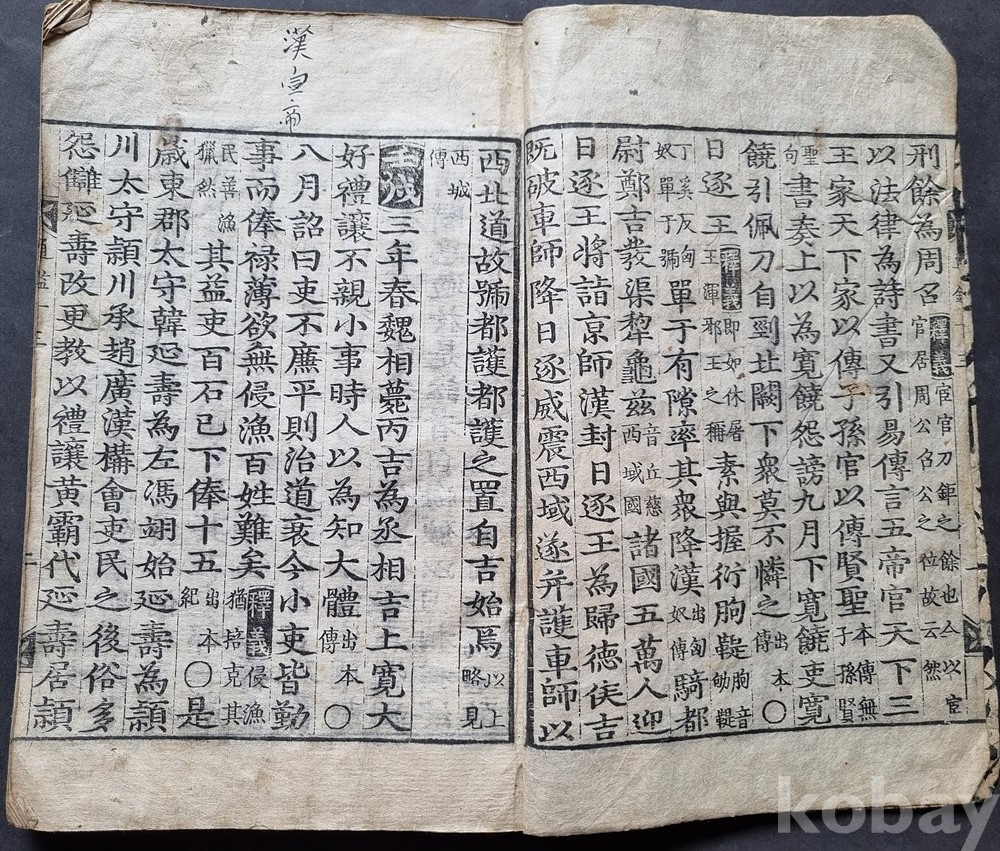 刑餘為周召釋義宦官刀鉅之餘也今以宦官居周公召公之位故云然
以法律為詩書又引易傳言五帝官天下三
王家天下家以傳子孫官以傳賢聖本傳無子孫賢
聖句書奏上以為寬饒怨謗九月下寬饒吏寬
饒引佩刀自剄北闕下衆莫不憐之出本傳〇
日逐王釋義即如休屠王渾邪王之稱素與握衍朐鞮朐音劬鞮
丁奚反匈奴單于號單于有隙率其衆降漢出匈奴傳騎都
尉鄭吉發渠犂龜茲音丘慈西域國諸國五萬人迎
日逐王將詣京師漢封日逐王為歸德侯吉
旣破車師降日逐威震西域遂并護車師以
西北道故號都護都護之置自吉始焉以上略見
西城傳
漢宣帝
壬戌三年春魏相薨丙吉為丞相吉上寬大
好禮讓不親小事時人以為知大體出本傳〇
八月詔曰吏不廉平則治道衰今小吏皆勤
事而俸祿薄欲無侵漁百姓難矣釋義侵漁猶掊克其
民善漁獵然其益吏百石已下俸十五出本紀〇是
歲東郡太守韓延壽為左馮翊始延壽為潁
川太守潁川承趙廣漢構會吏民之後俗多
怨讎延壽改更教以禮讓黃霸代延壽居潁
kobay